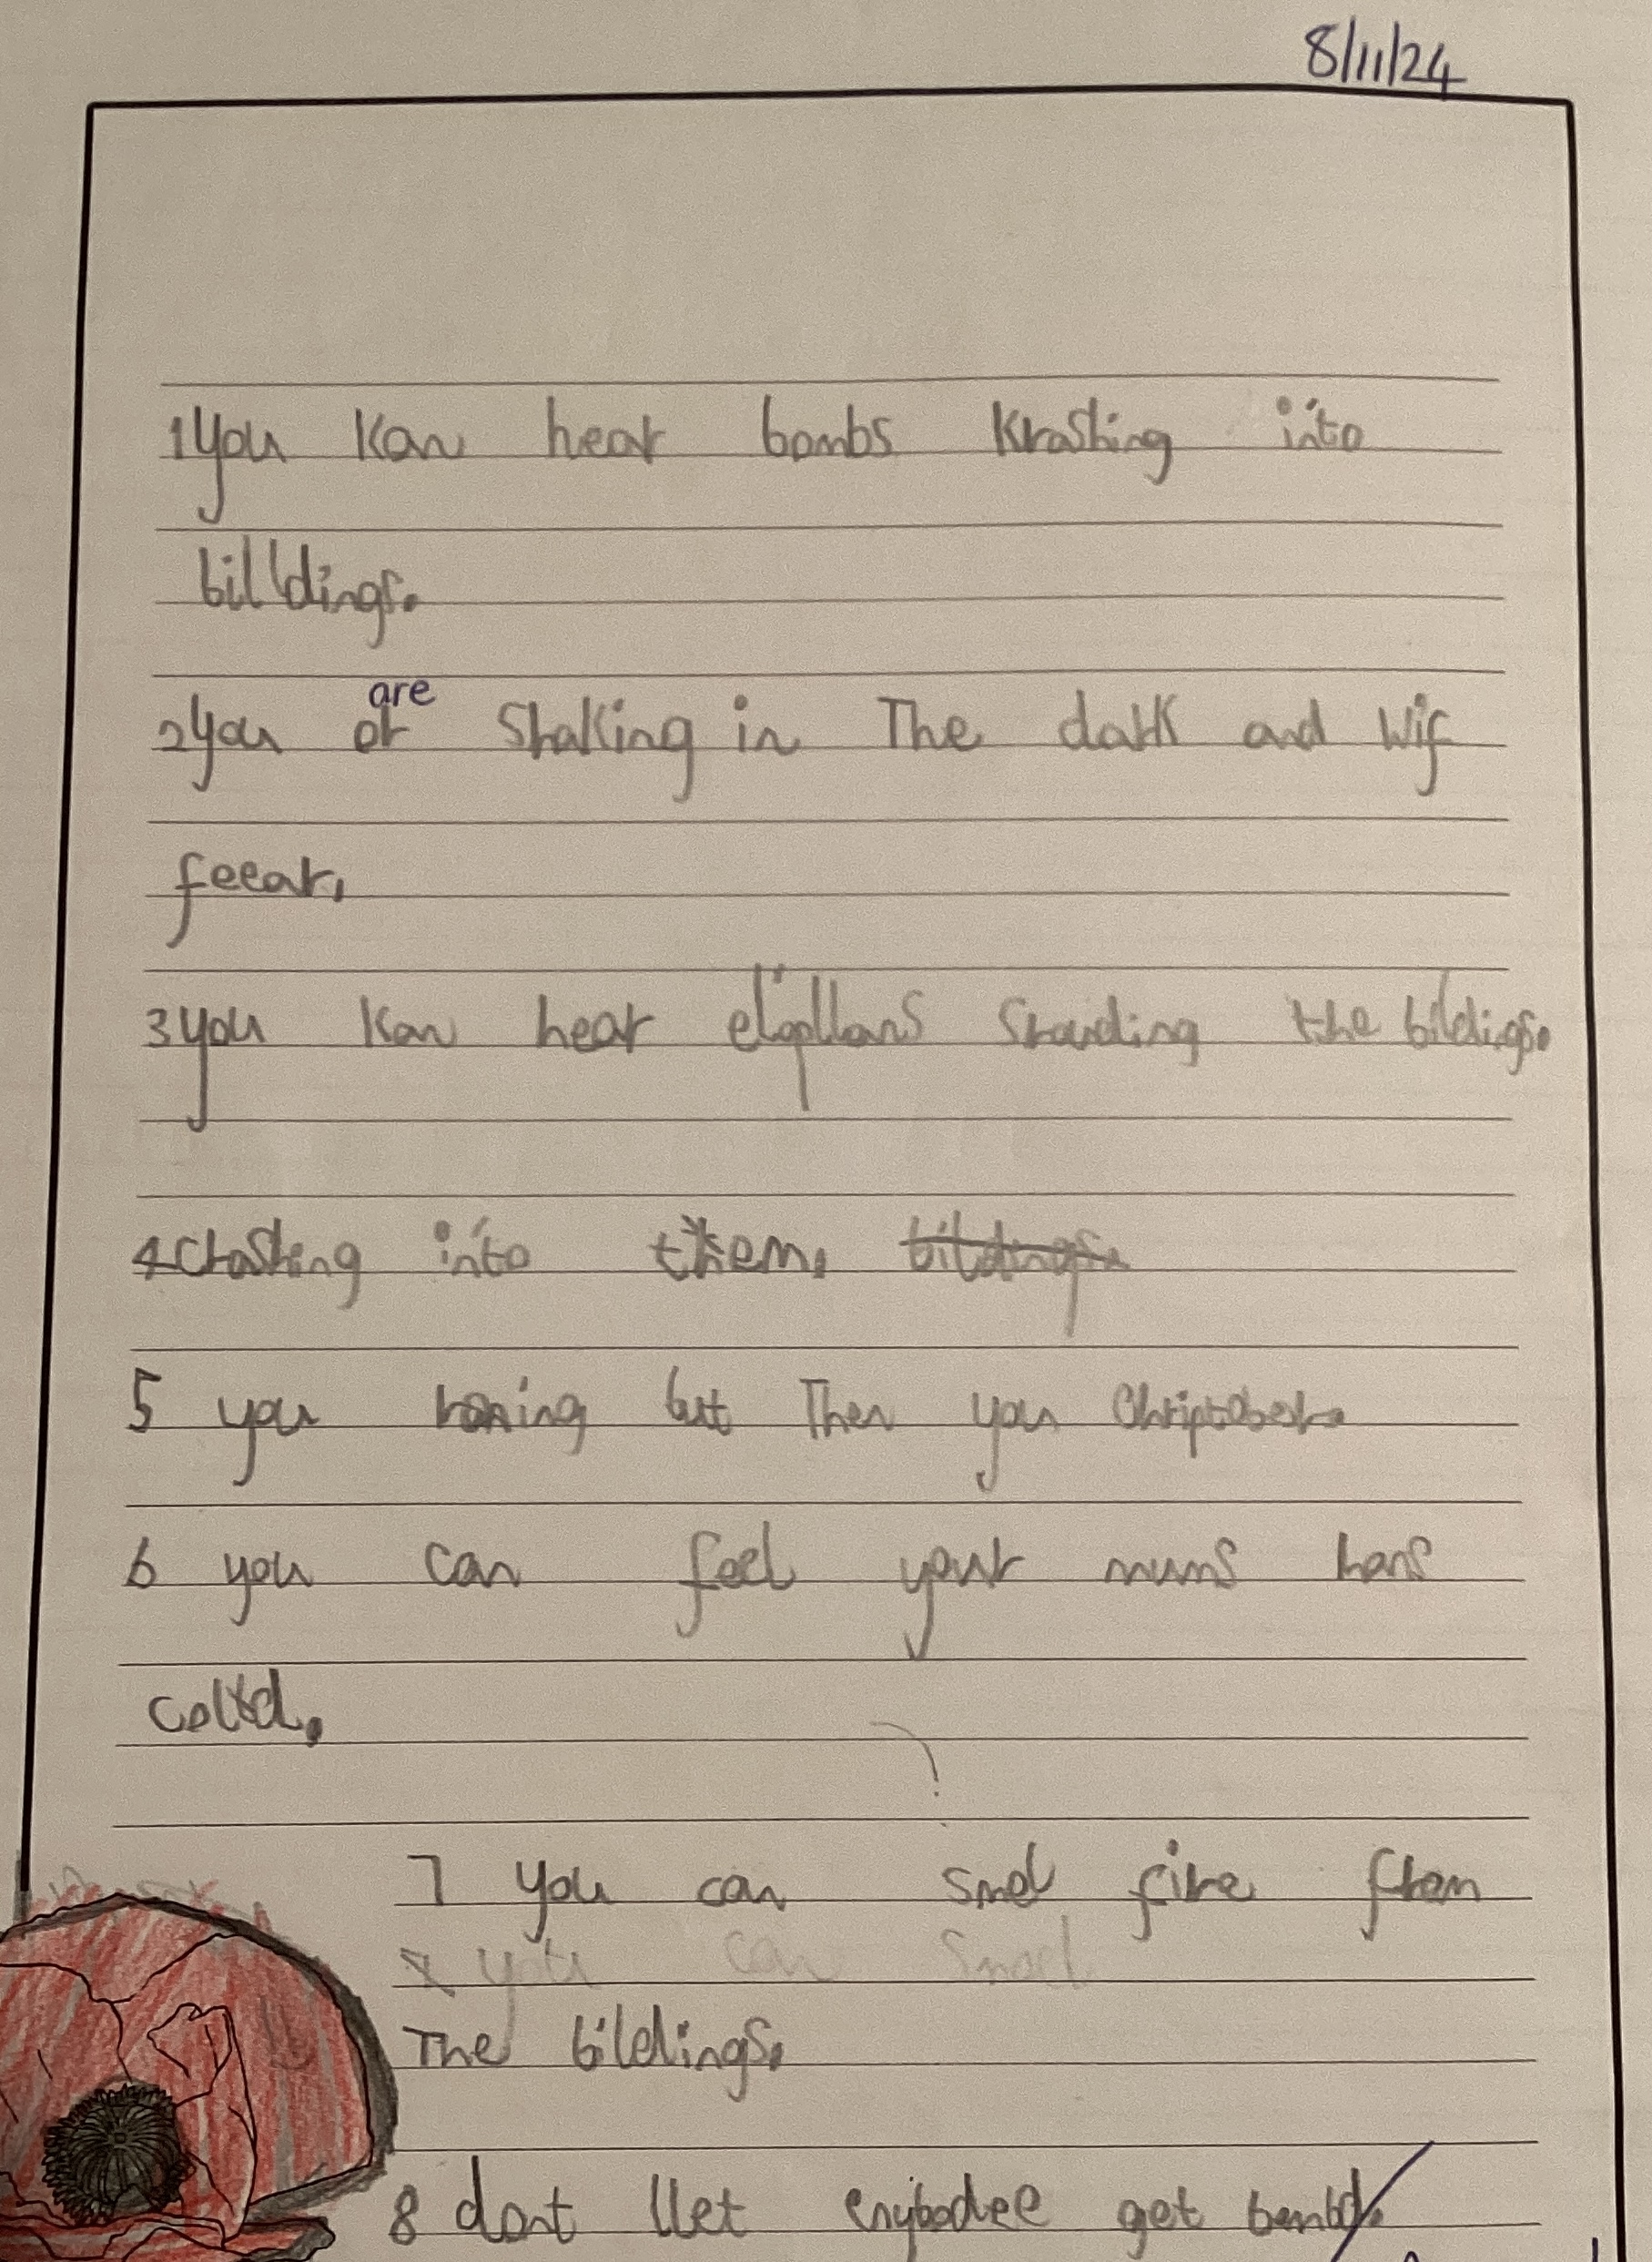 8/11/24
1 you kan hear bombs Krashing into
billdings.
are
2 you ar Shaking in The dark and wif
feear.
3 you kan hear the bildings.
4 crashing into them. bildings.
5 you raning but Then you
6 you can feel your mums hans
colld.
7 you can smel fire from
you can smel
The bildings.
8 dont llet enybodee get bombd.